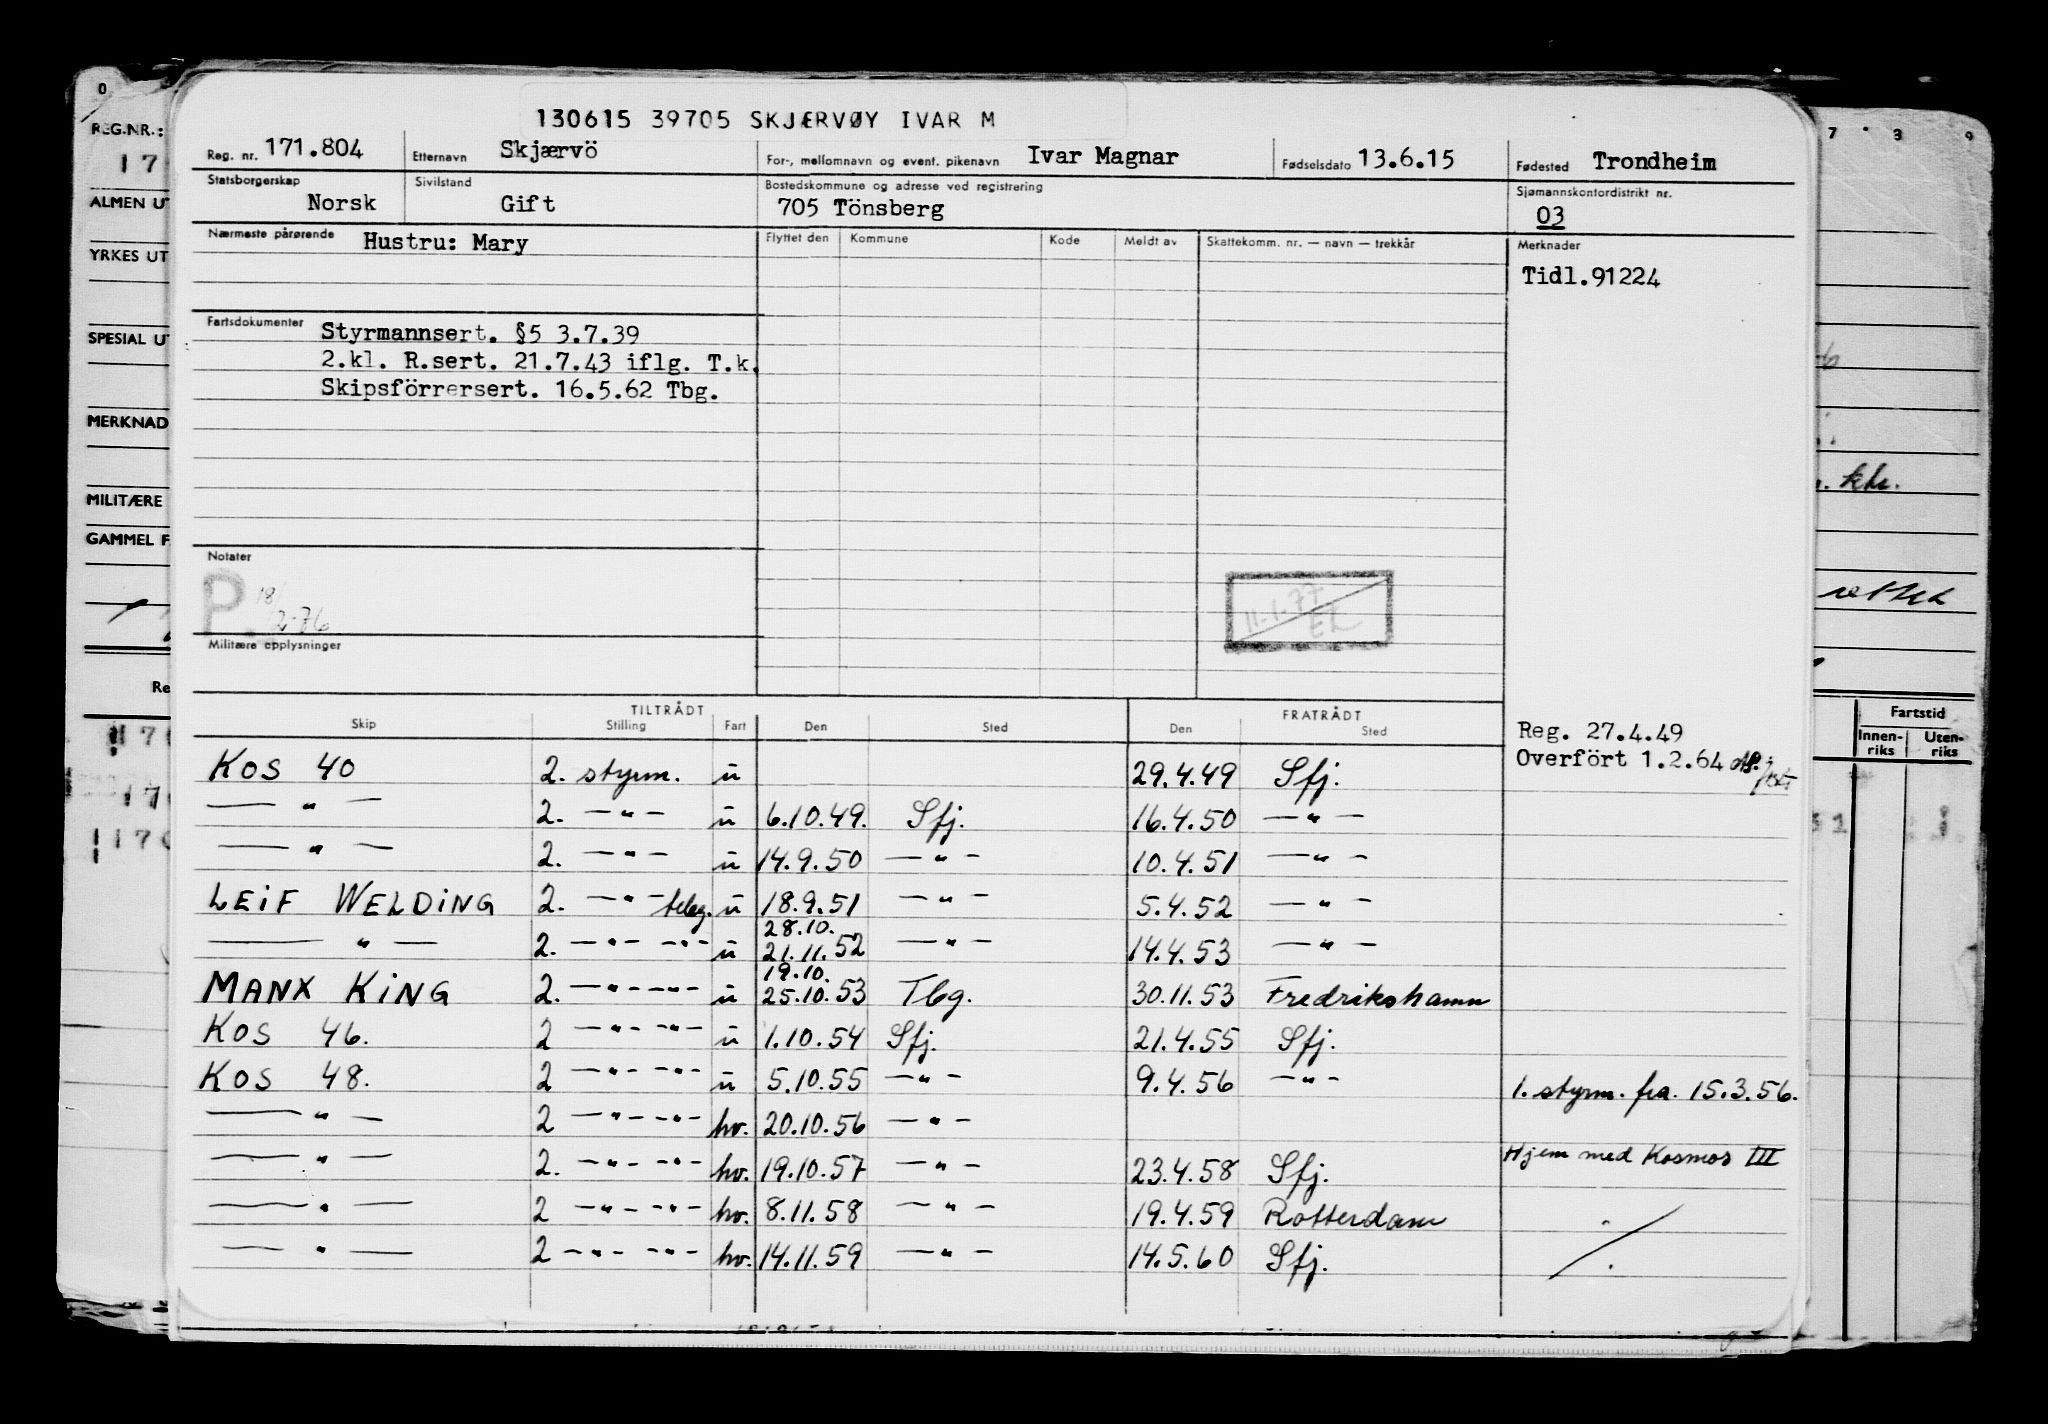 130615 39705 SKJÆRVØY IVAR M
Reg. nr. 171.804 Etternavn Skjærvö For-, mellomnavn og event. pikenavn Ivar Magnar Fødselsdato 13.6.15 Fødested Trondheim
Statsborgerskap Norsk Sivilstand Gift Bostedskommune og adresse ved registrering 705 Tönsberg Sjømannskontordistrikt nr. 03
Nærmeste pårørende Hustru: Mary Flyttet den Kommune Kode Meldt av Skattekomm. nr. — navn — trekkår Merknader
Tidl.91224
Fartsdokumenter Styrmannsert. §5 3.7.39
2.kl. R.sert. 21.7.43 iflg. T.k.
Skipsförrersert. 16.5.62 Tbg.
Notater
P 18/2-76
11-1-77
EL
Militære opplysninger
TILTRÅDT FRATRÅDT
Skip Stilling Fart Den Sted Den Sted
Reg. 27.4.49
Overfört 1.2.64
KOS 40 2. styrm. u 29.4.49 Sfj.
— " — 2. — " — u 6.10.49. Sfj. 16.4.50 — " —
— " — 2. — " — u 14.9.50 — " — 10.4.51 — " —
LEIF WELDING 2. — " — teleg. u 18.9.51 — " — 5.4.52 — " —
28.10.
— " — 2. — " — — " — u 21.11.52 — " — 14.4.53 — " —
19.10.
MANX KING 2. — " — — " — u 25.10.53 Tbg. 30.11.53 Fredrikshamn
KOS 46. 2 — " — — " — u 1.10.54 Sfj. 21.4.55 Sfj.
KOS 48. 2 — " — — " — u 5.10.55 — " — 9.4.56 — " — 1. styrm. fra. 15.3.56.
— " — 2 — " — — " — hv. 20.10.56 — " —
— " — 2. — " — — " — hv. 19.10.57 — " — 23.4.58 Sfj. Hjem med Kosmos III
— " — 2 — " — — " — hv. 8.11.58 — " — 19.4.59 Rotterdam
— " — 2 — " — — " — hv. 14.11.59 — " — 14.5.60 Sfj.
0
REG.NR.:
17
ALMEN UT
YRKES UT
SPESIAL UT
MERKNAD
MILITÆRE
GAMMEL F
Re
170
17
170
7 3 9
khr.
Fartstid
Innen-riks Uten-riks